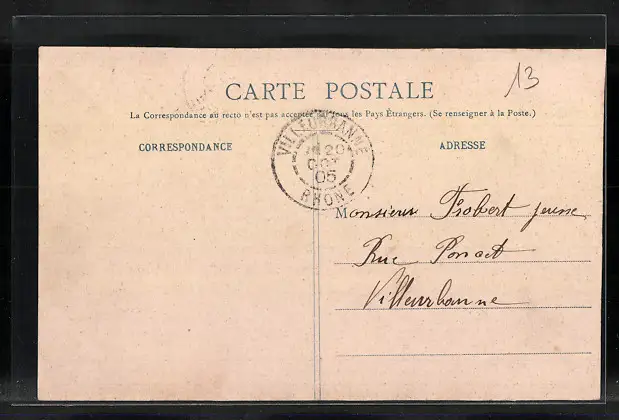 13
CARTE POSTALE
La Correspondance au recto n'est pas acceptée tous les Pays Étrangers. (Se renseigner à la Poste.)
CORRESPONDANCE
ADRESSE
VILLEURBANNE
20
OCT
05
RHONE
Monsieur Frobert jeune
Rue Poncet
Villeurbanne